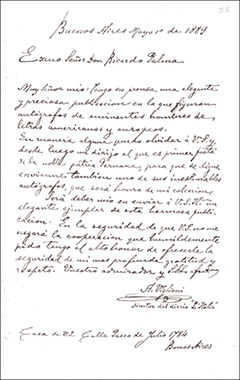 Buenos Aires Mayo 1º de 1889
Exmo Señor Don Ricardo Palma
Muy Señor mio: Tengo en prensa, una elegante
y preciosa publicacion en la que figuran
autógrafos de eminentes hombres de
letras americanos y europeos.
En manera alguna puedo olvidar á V.S. y
desde luego me dirijo al que es primer poeta
de la noble patria Peruana, para que se digne
enviarme tambien uno de sus inestimables
autógrafos, que será honra de mi coleccion.
Será deber mio en enviar á V.S. un
elegante ejemplar de esta hermosa publi
cacion. En la seguridad de que V.S. no me
negará la cooperacion que humildemente
pido tengo el alto honor de ofrecerle la
seguridad de mi mas profunda gratitud y
respeto. Vuestro admirador y
Director del diario L'Italia
Casa de V.S. Calle Paseo de Julio 1784
Buenos Aires